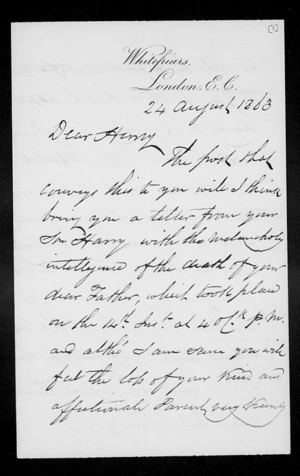 (1)
Whitefriars.
London, E.C.
24 August 1863
Dear Henry
The post that
conveys this to you will I think
bring you a letter from your
Son Harry with the melancholy
intelligence of the death of your
dear Father, which took place
on the 14th Inst. at 4 oClk p.m.
and altho' I am sure you will
feel the loss of your kind and
affectionate Parent very keenly